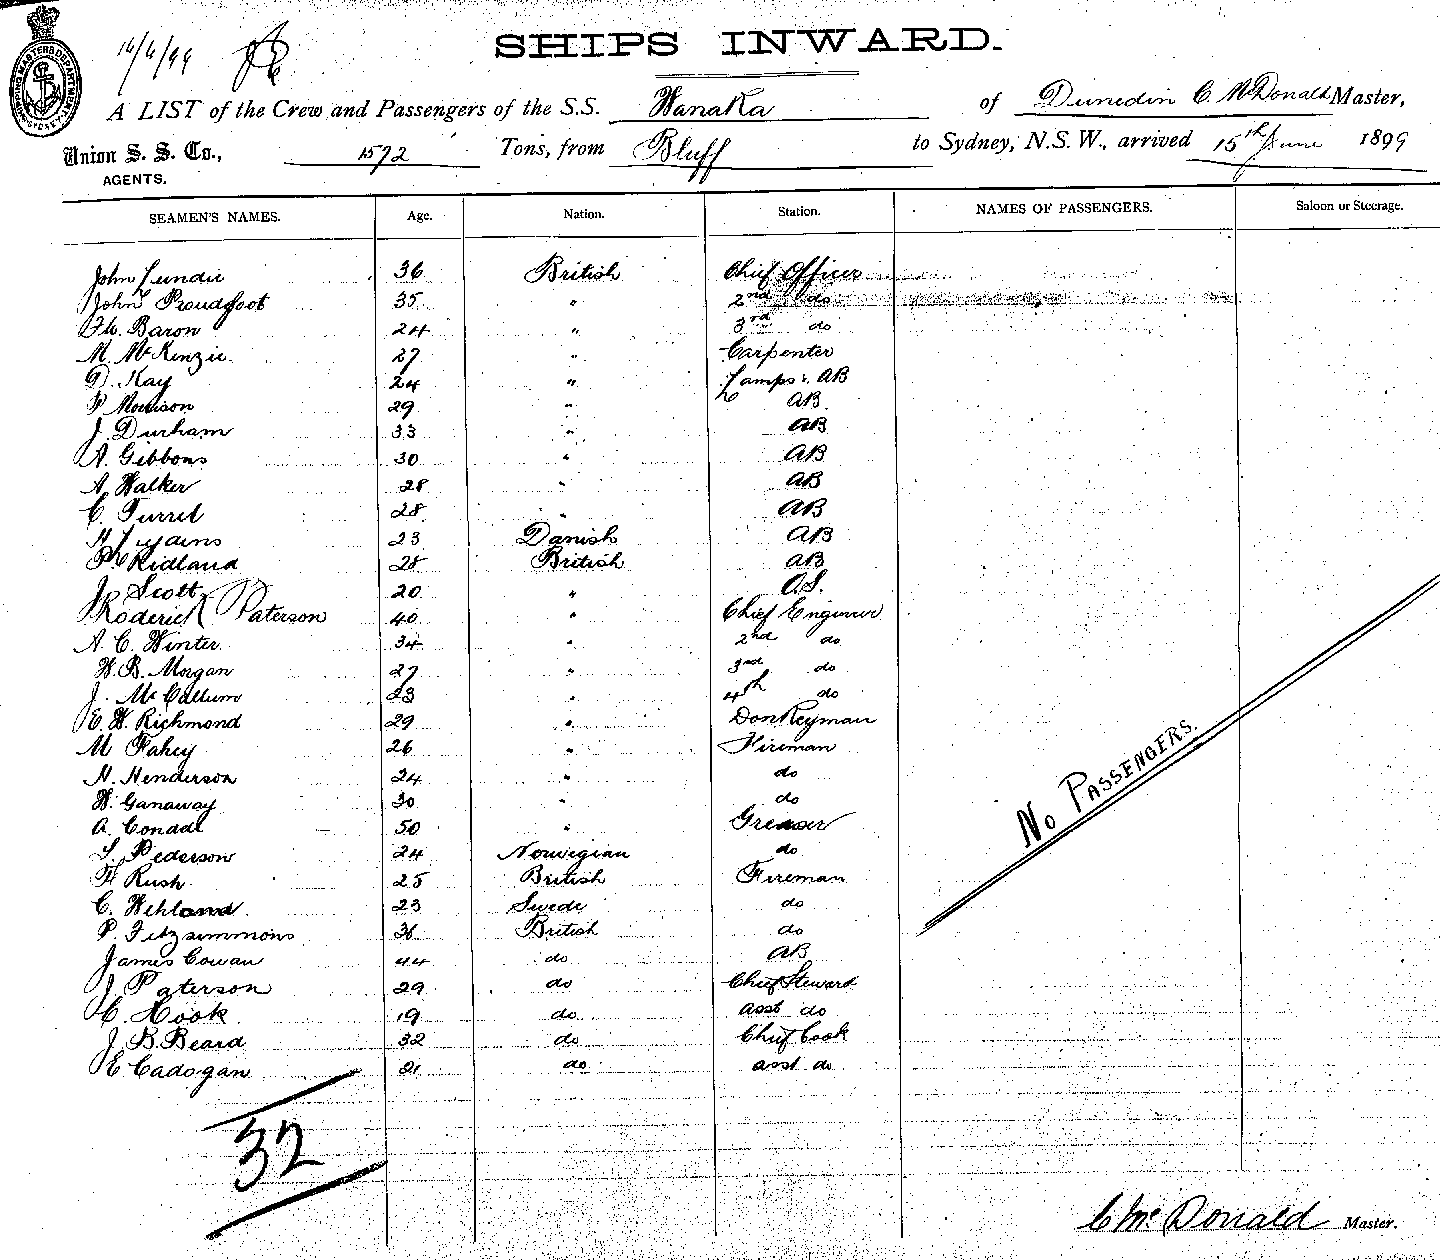 SHIPS INWARD.
16/6/99
A LIST of the Crew and Passengers of the S.S. Wanaka of Dunedin C. McDonald Master,
Union S. S. Co., 1572 Tons, from Bluff to Sydney, N.S.W., arrived 15th June 1899
AGENTS.
SEAMEN'S NAMES. Age. Nation. Station. NAMES OF PASSENGERS. Saloon or Steerage.
John Lundie 36 British Chief Officer
John Proudfoot 35 " 2nd do
Baron 24 " 3rd do
M. McKenzie 27 " Carpenter
D. Kay 24 " Lamps & AB
P Morrison 29 " AB
J. Durham 33 " AB
A. Gibbons 30 " AB
A. Walker 28 " AB
C. Turret 28 " AB
23 Danish AB
Ridland 28 British AB
J. Scott 20 " O.S.
Roderick Paterson 40 " Chief Engineer
A. C. Winter 34 " 2nd do
W. B. Morgan 27 " 3rd do
J. McCallum 23 " 4th do
E. W. Richmond 29 " Donkeyman
M Fahey 26 " Fireman
H. Henderson 24 " do
W. Ganaway 30 " do
A. 50 " Greaser
Pederson 24 Norwegian do
Rush 25 British Fireman
C. Wehland 23 Swede do
P. Fitzsimmons 36 British do
James Cowan 44 do AB
J Paterson 29 do Chief Steward
C Hook 19 do asst do
J. B. Beard 32 do Chief Cook
E Cadogan 21 do asst do
No PASSENGERS.
32
C McDonald Master.